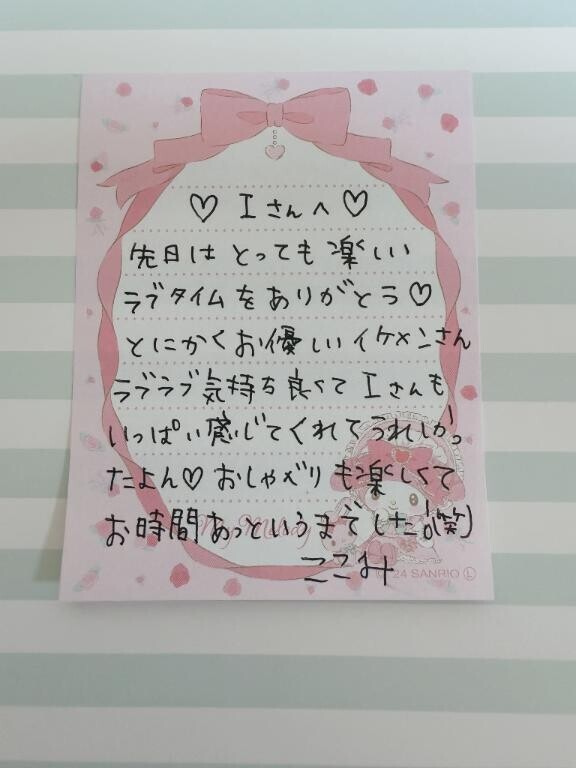 ♡ Iさんへ ♡
先日はとっても楽しい
ラブタイムをありがとう♡
とにかくお優しいイケメンさん
ラブラブ気持ち良くてIさんも
いっぱい感じてくれてうれしかっ
たよん♡おしゃべりも楽しくて
お時間あっというまでした!(笑)
My Melody
ここみ
24 SANRIO Ⓛ